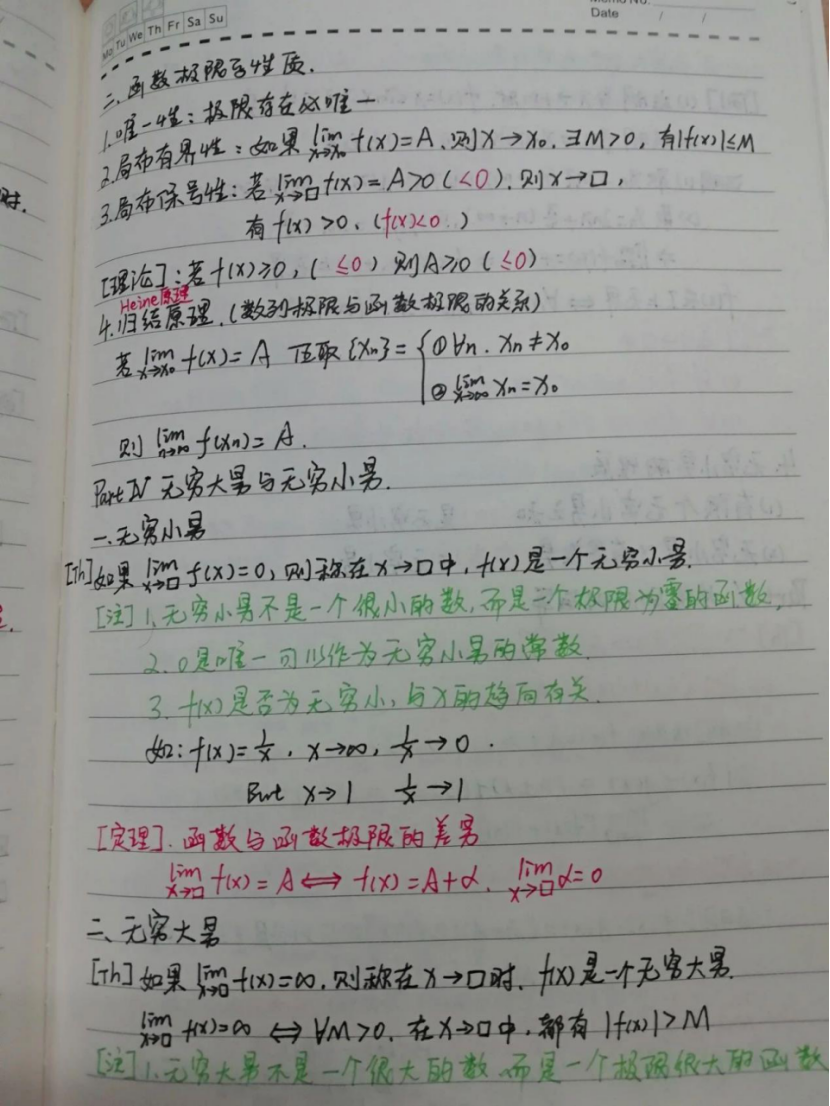 Mo Tu We Th Fr Sa Su
Memo No.
Date / /
二、函数极限与性质.
1.唯一性:极限存在必唯一
2.局布有界性:如果 lim x→x₀ f(x)=A.则x→x₀.∃M>0,有|f(x)|≤M
3.局布保号性:若 lim x→□ f(x)=A>0(<0).则x→□,
有f(x)>0.(f(x)<0)
[理论]:若f(x)≥0,(≤0)则A≥0(≤0)
Heine原理
4.归结原理.(数列极限与函数极限的关系)
若 lim x→x₀ f(x)=A 任取{xₙ}={①∀n.xₙ≠x₀
②lim x→∞ xₙ=x₀
则 lim n→∞ f(xₙ)=A.
Part IV 无穷大量与无穷小量.
一.无穷小量
[Th]如果 lim x→□ f(x)=0,则称在x→□中,f(x)是一个无穷小量.
[注]1,无穷小量不是一个很小的数,而是一个极限为零的函数,
2.0是唯一可以作为无穷小量的常数.
3.f(x)是否为无穷小,与x的趋向有关.
如:f(x)=1/x,x→∞,1/x→0.
But x→1 1/x→1
[定理].函数与函数极限的差量
lim x→□ f(x)=A⟺f(x)=A+α. lim x→□ α=0
二、无穷大量
[Th]如果 lim x→□ f(x)=∞,则称在x→□时.f(x)是一个无穷大量.
lim x→□ f(x)=∞⟺∀M>0.在x→□中,都有|f(x)|>M
[注]1.无穷大量不是一个很大的数.而是一个极限很大的函数